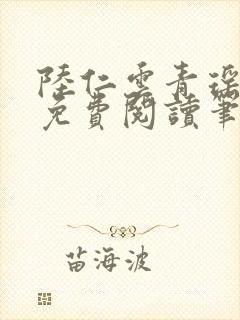 陸仁雲青瑶
免費閱讀筆
苗海波